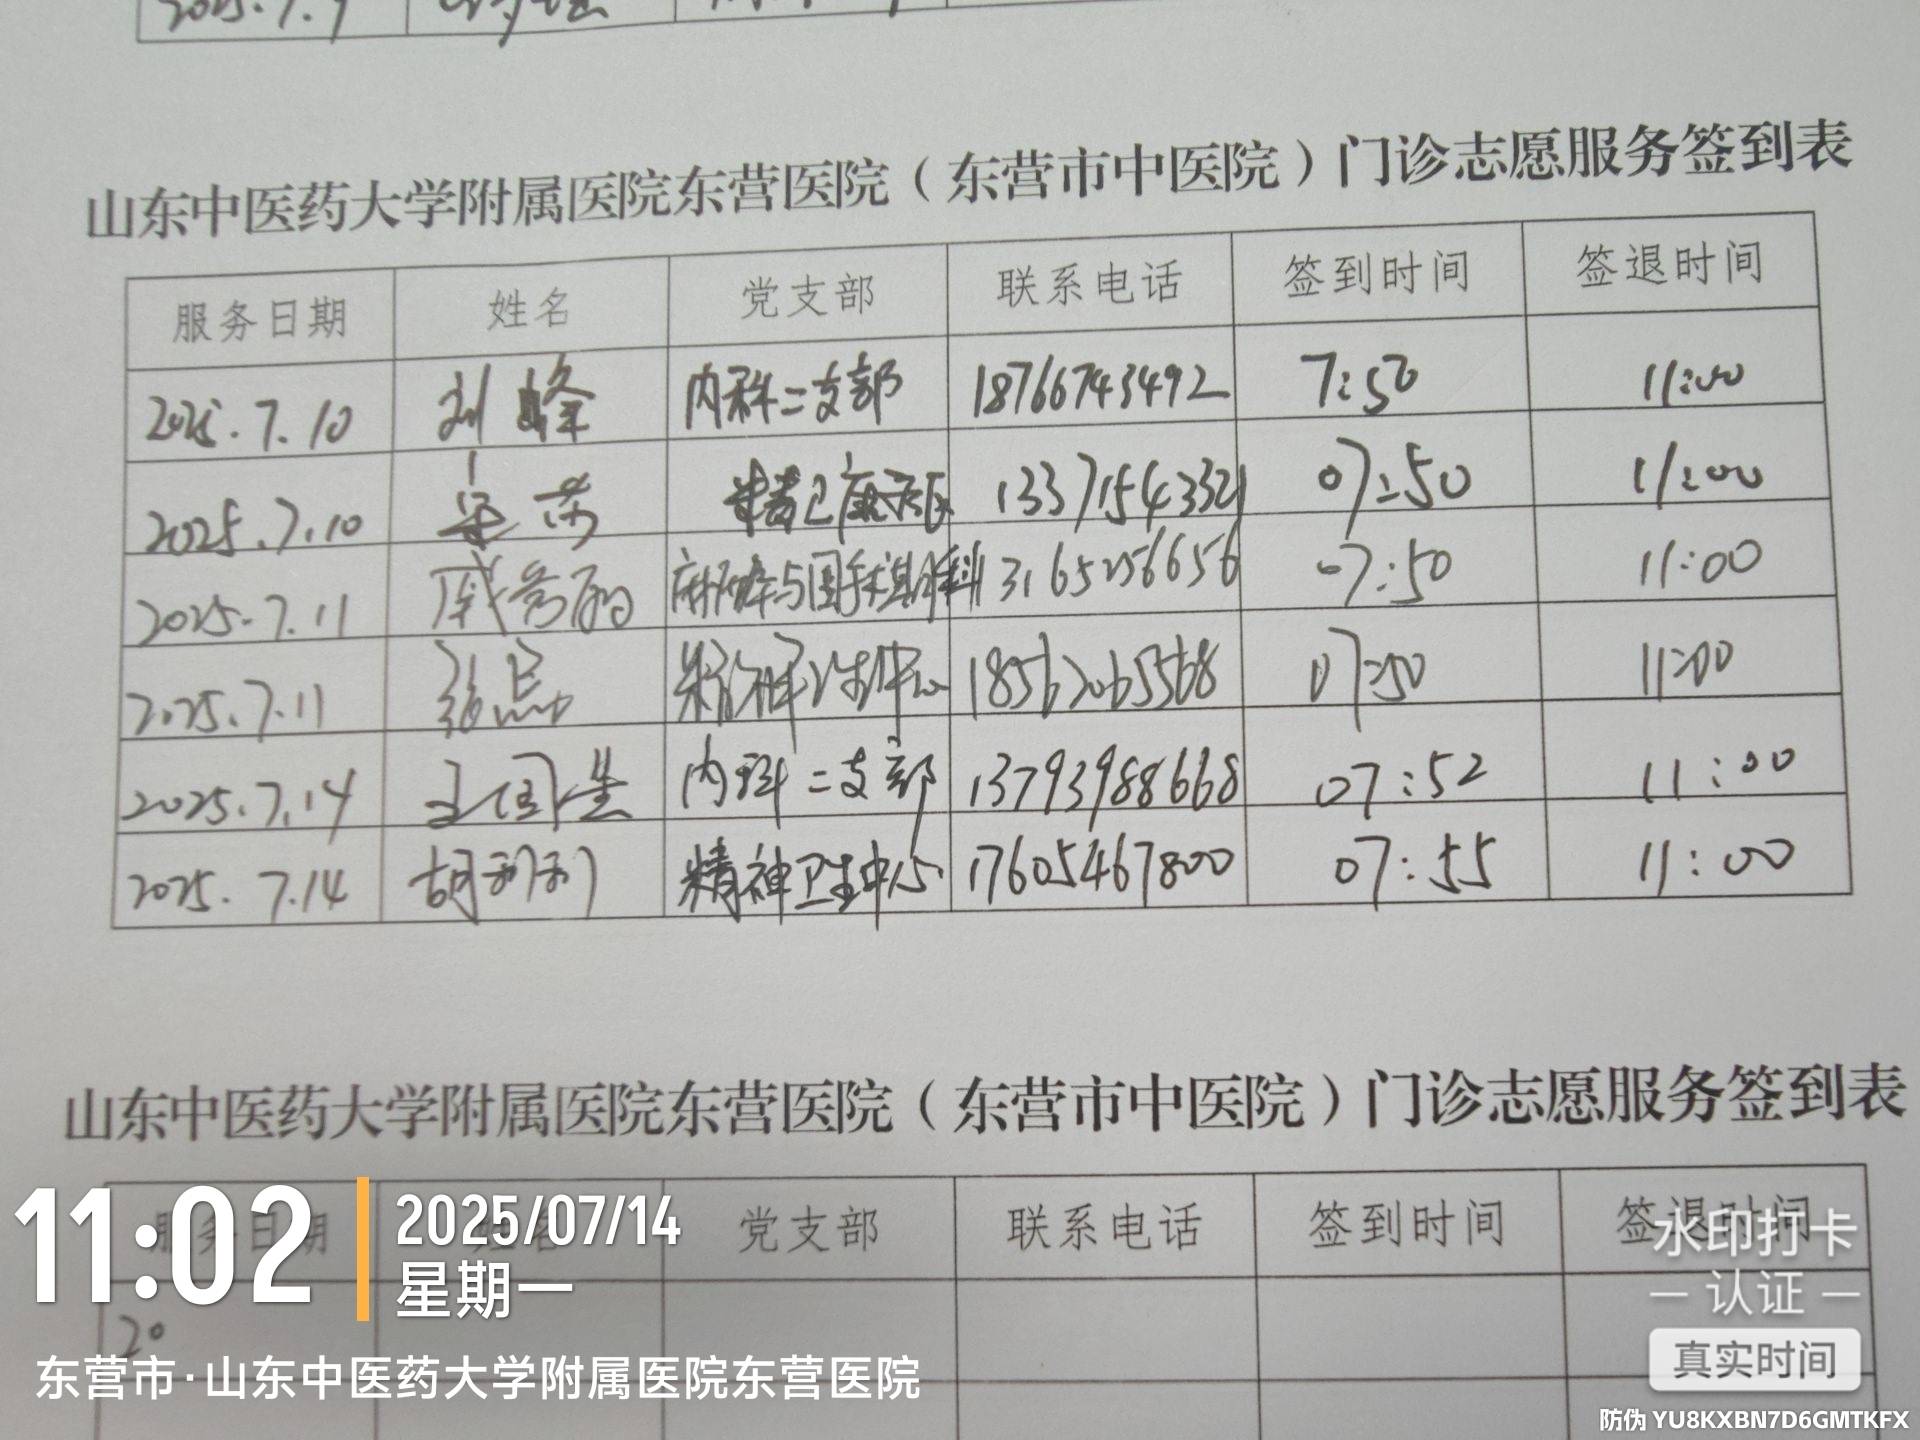 2025.7.9
山东中医药大学附属医院东营医院（东营市中医院）门诊志愿服务签到表
服务日期 姓名 党支部 联系电话 签到时间 签退时间
2025.7.10 刘峰 内科二支部 18766743492 7:50 11:00
2025.7.10 13371543321 07:50 11:00
2025.7.11 麻醉与围手术期 07:50 11:00
2025.7.11 18562065568 07:50 11:00
2025.7.14 王国 内科二支部 13793988668 07:52 11:00
2025.7.14 胡利利 精神卫生中心 17605467800 07:55 11:00
山东中医药大学附属医院东营医院（东营市中医院）门诊志愿服务签到表
服务日期 姓名 党支部 联系电话 签到时间 签退时间
20
11:02
2025/07/14
星期一
东营市·山东中医药大学附属医院东营医院
水印打卡
认证
真实时间
防伪 YU8KXBN7D6GMTKFX